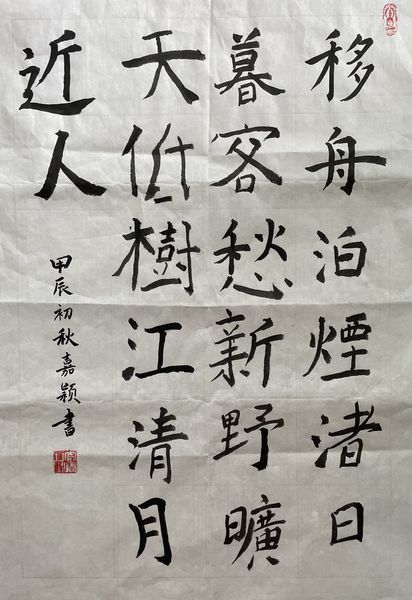 移舟泊煙渚日
暮客愁新野曠
天低樹江清月
近人
甲辰初秋嘉穎書